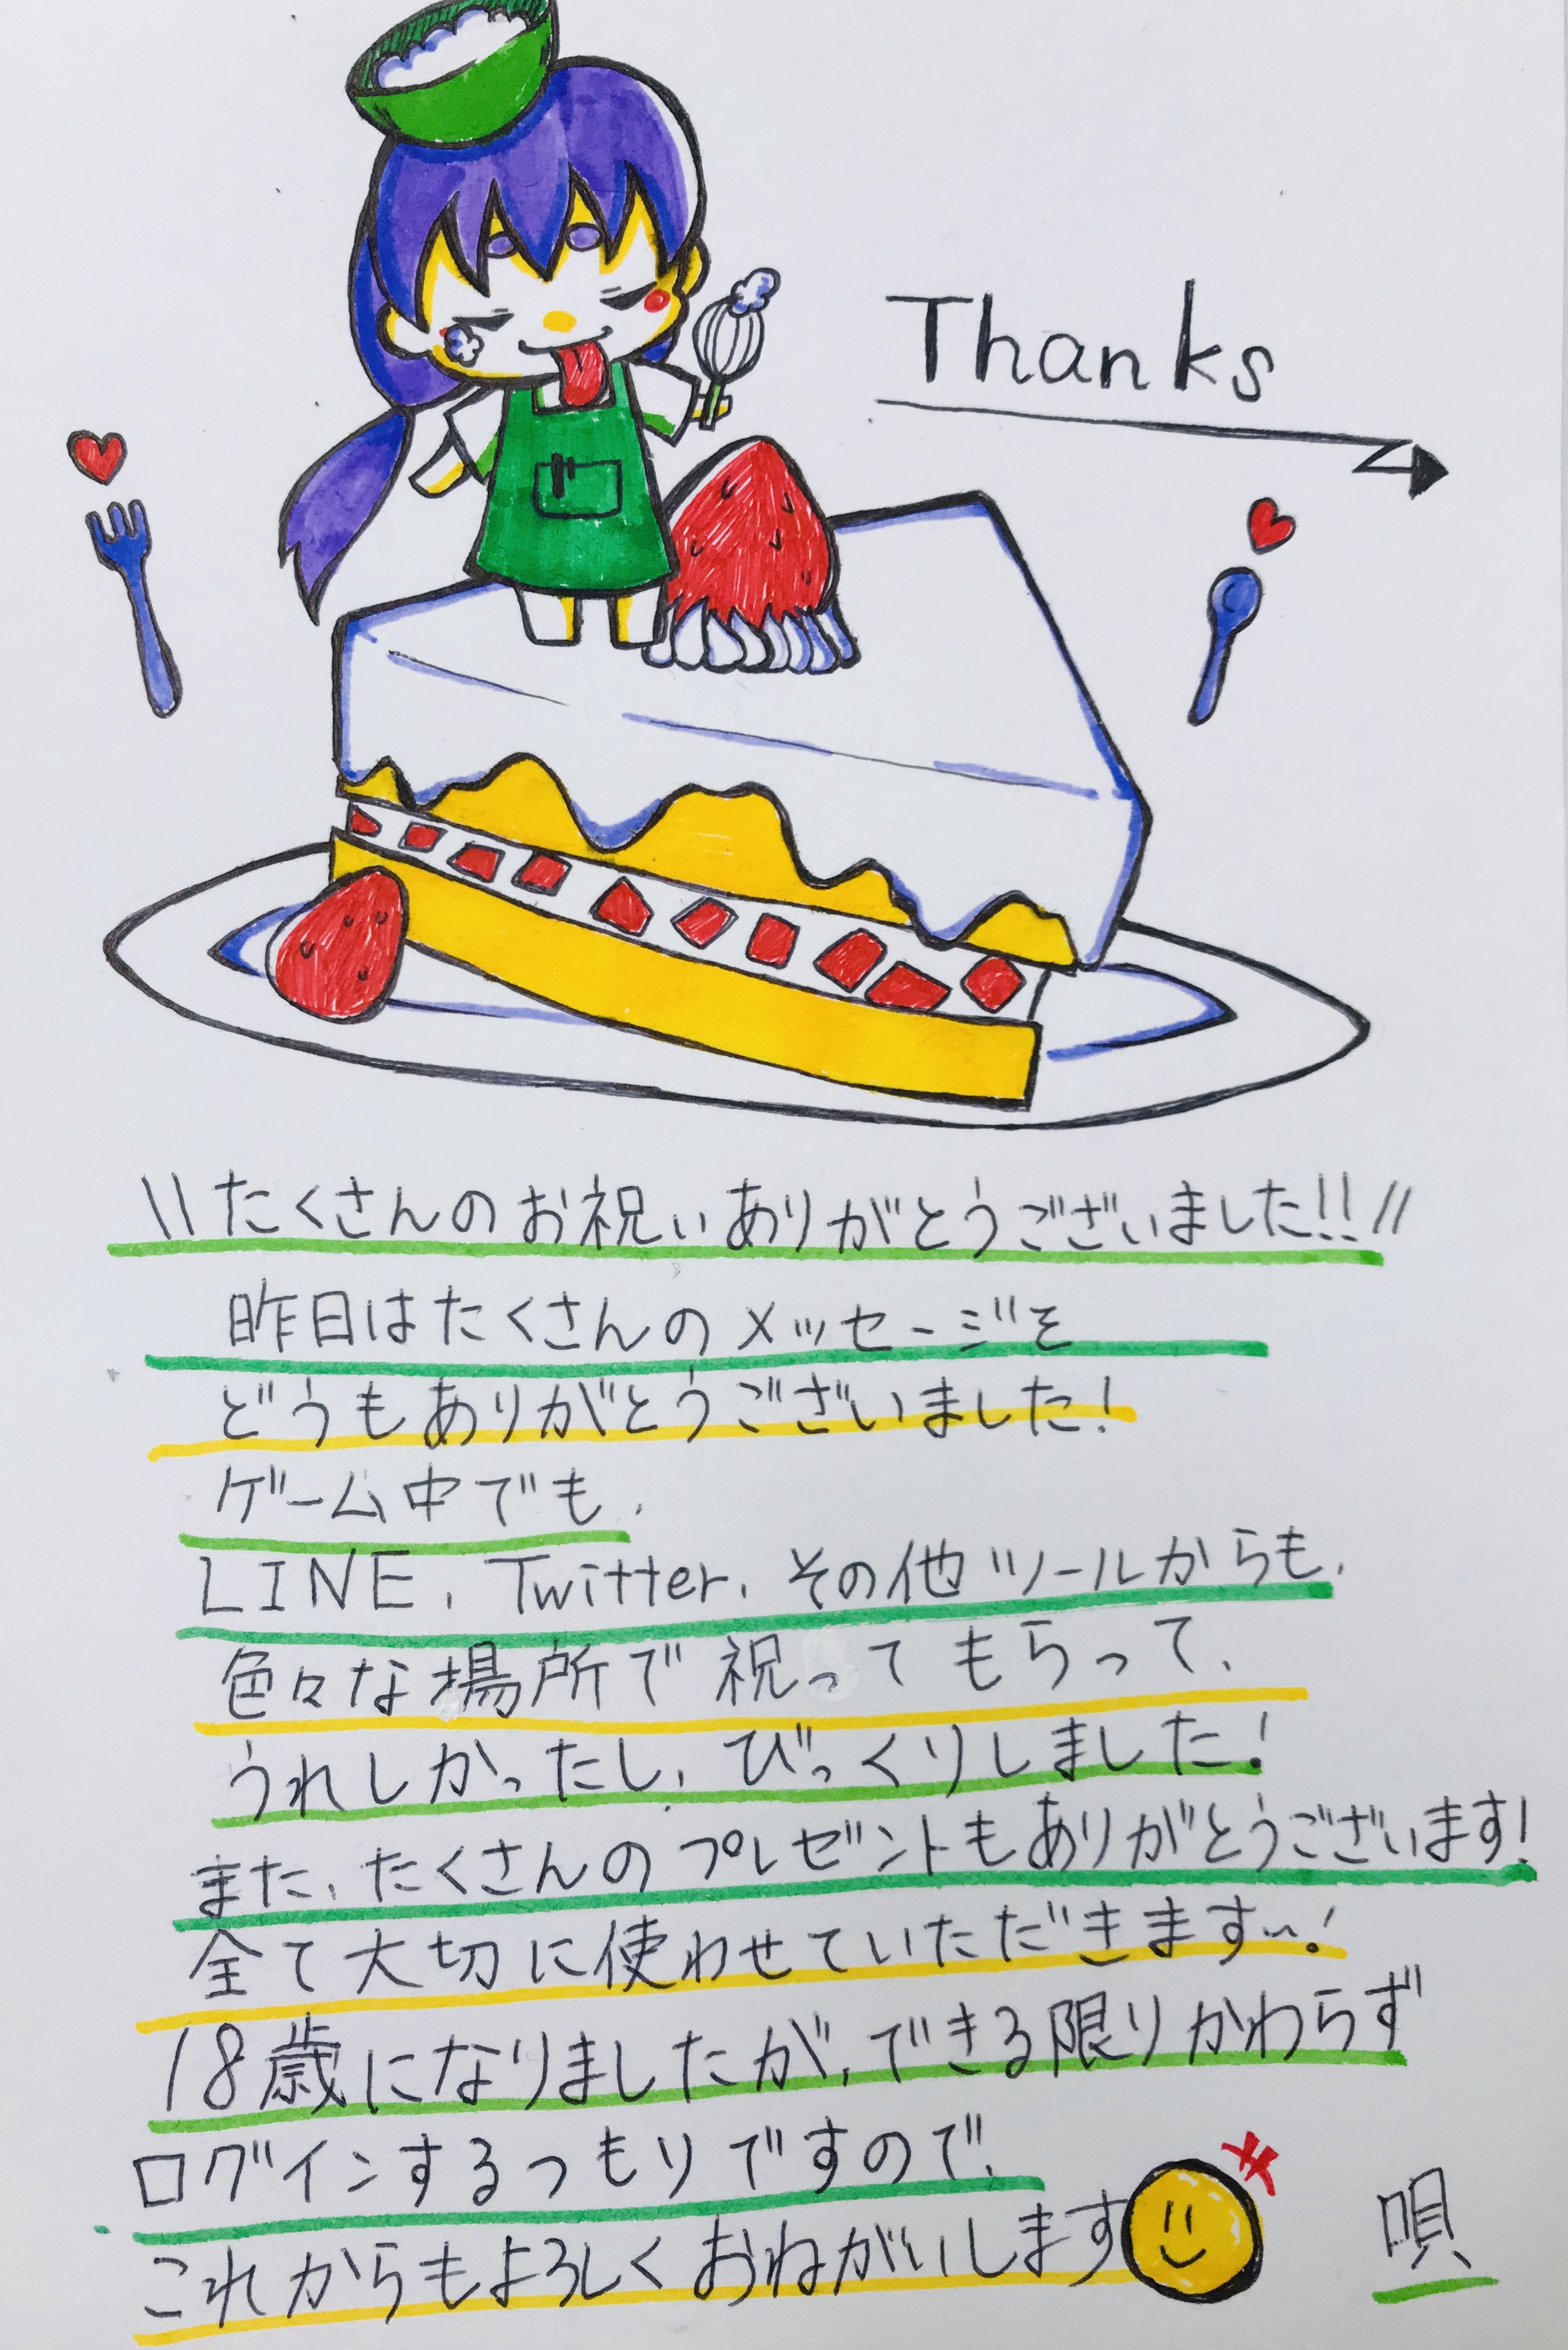 Thanks
\\たくさんのお祝いありがとうございました!!//
昨日はたくさんのメッセージを
どうもありがとうございました!
ゲーム中でも、
LINE、Twitter、その他ツールからも、
色々な場所で祝ってもらって、
うれしかったし、びっくりしました!
また、たくさんのプレゼントもありがとうございます!
全て大切に使わせていただきます~!
18歳になりましたが、できる限りかわらず
ログインするつもりですので、
これからもよろしくおねがいします
唄